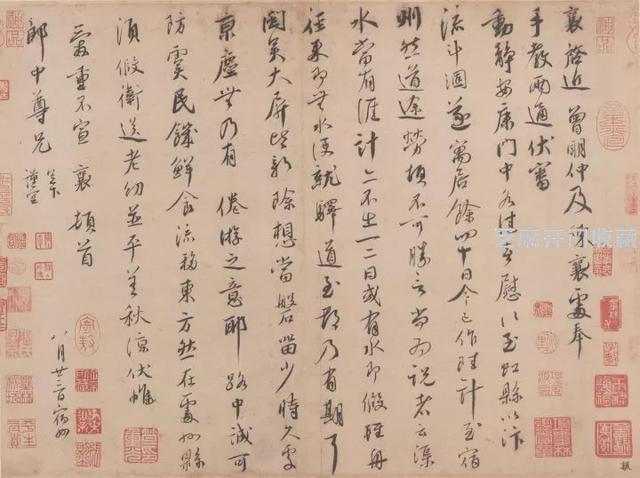 襄啓近曾明仲及陳襄處奉
手教兩通伏審
動静安康門中各佳喜慰〻至虹縣以汴
流斗涸遂寓居餘四十日今已作陸計至宿
州然道途勞頓不可勝言尚為說者云渠
水當有涯計亦不出一二日或有水即假輕舟
徑來即無水便就驛道至都乃有期耳
聞美大屏皆新除想當磐留少時久處
京塵無乃有倦游之意耶路中誠可
防虞民饑鮮食流移東方然在處州縣
須假衛送老幼並平善秋涼伏惟
愛重不宣襄頓首
郎中尊兄足下
謹空
八月廿三日宿州
芝麻开门收藏